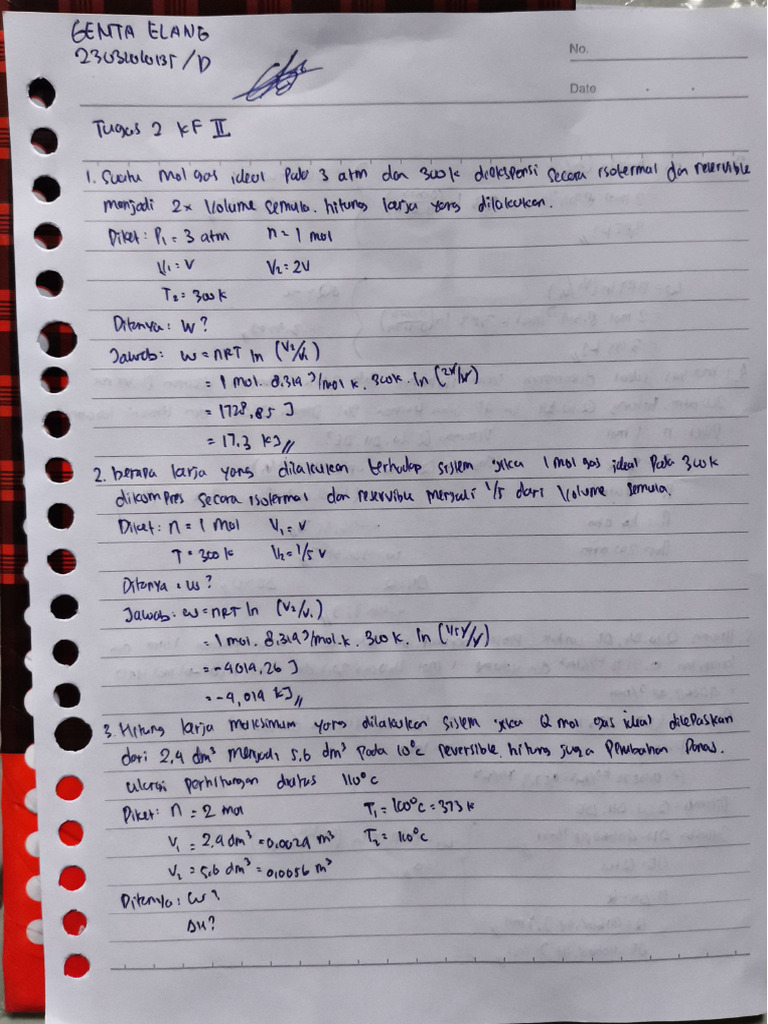 GENTA ELANG
/D
No.
Date
Tugas 2 KF II
1. Suatu mol gas ideal Pada 3 atm dan 300k diekspansi secara isotermal dan reversible
menjadi 2x Volume semula. hitung karja yang dilakukan.
Diket: P₁ = 3 atm n = 1 mol
V₁ = V V₂ = 2V
T₂ = 300k
Ditanya: W?
Jawab: W = nRT ln (V₂/V₁)
= 1 mol. 8.314 J/mol k. 300k. ln (2V/V)
= 1728,85 J
= 17.3 kJ//
2. berapa karja yang dilakukan terhadap sistem jika 1 mol gas ideal Pada 300k
dikompres secara isotermal dan reversibel menjadi 1/5 dari Volume semula.
Diket: n = 1 mol V₁ = V
T = 300k V₂ = 1/5 V
Ditanya = w?
Jawab: w = nRT ln (V₂/V₁)
= 1 mol. 8.314 J/mol.k. 300k. ln (1/5V/V)
= -4014,26 J
= -4,014 kJ//
3. Hitung karja maksimum yang dilakukan sistem jika 2 mol gas ideal dilepaskan
dari 2.4 dm³ menjadi 5.6 dm³ pada 10°c reversible. hitung juga Perubahan Panas.
ulangi perhitungan diatas 110°c
Diket: n = 2 mol T₁ = 100°c = 373k
V₁ = 2.4 dm³ = 0,0024 m³ T₂ = 110°c
V₂ = 5.6 dm³ = 0,0056 m³
Ditanya: W?
ΔH?